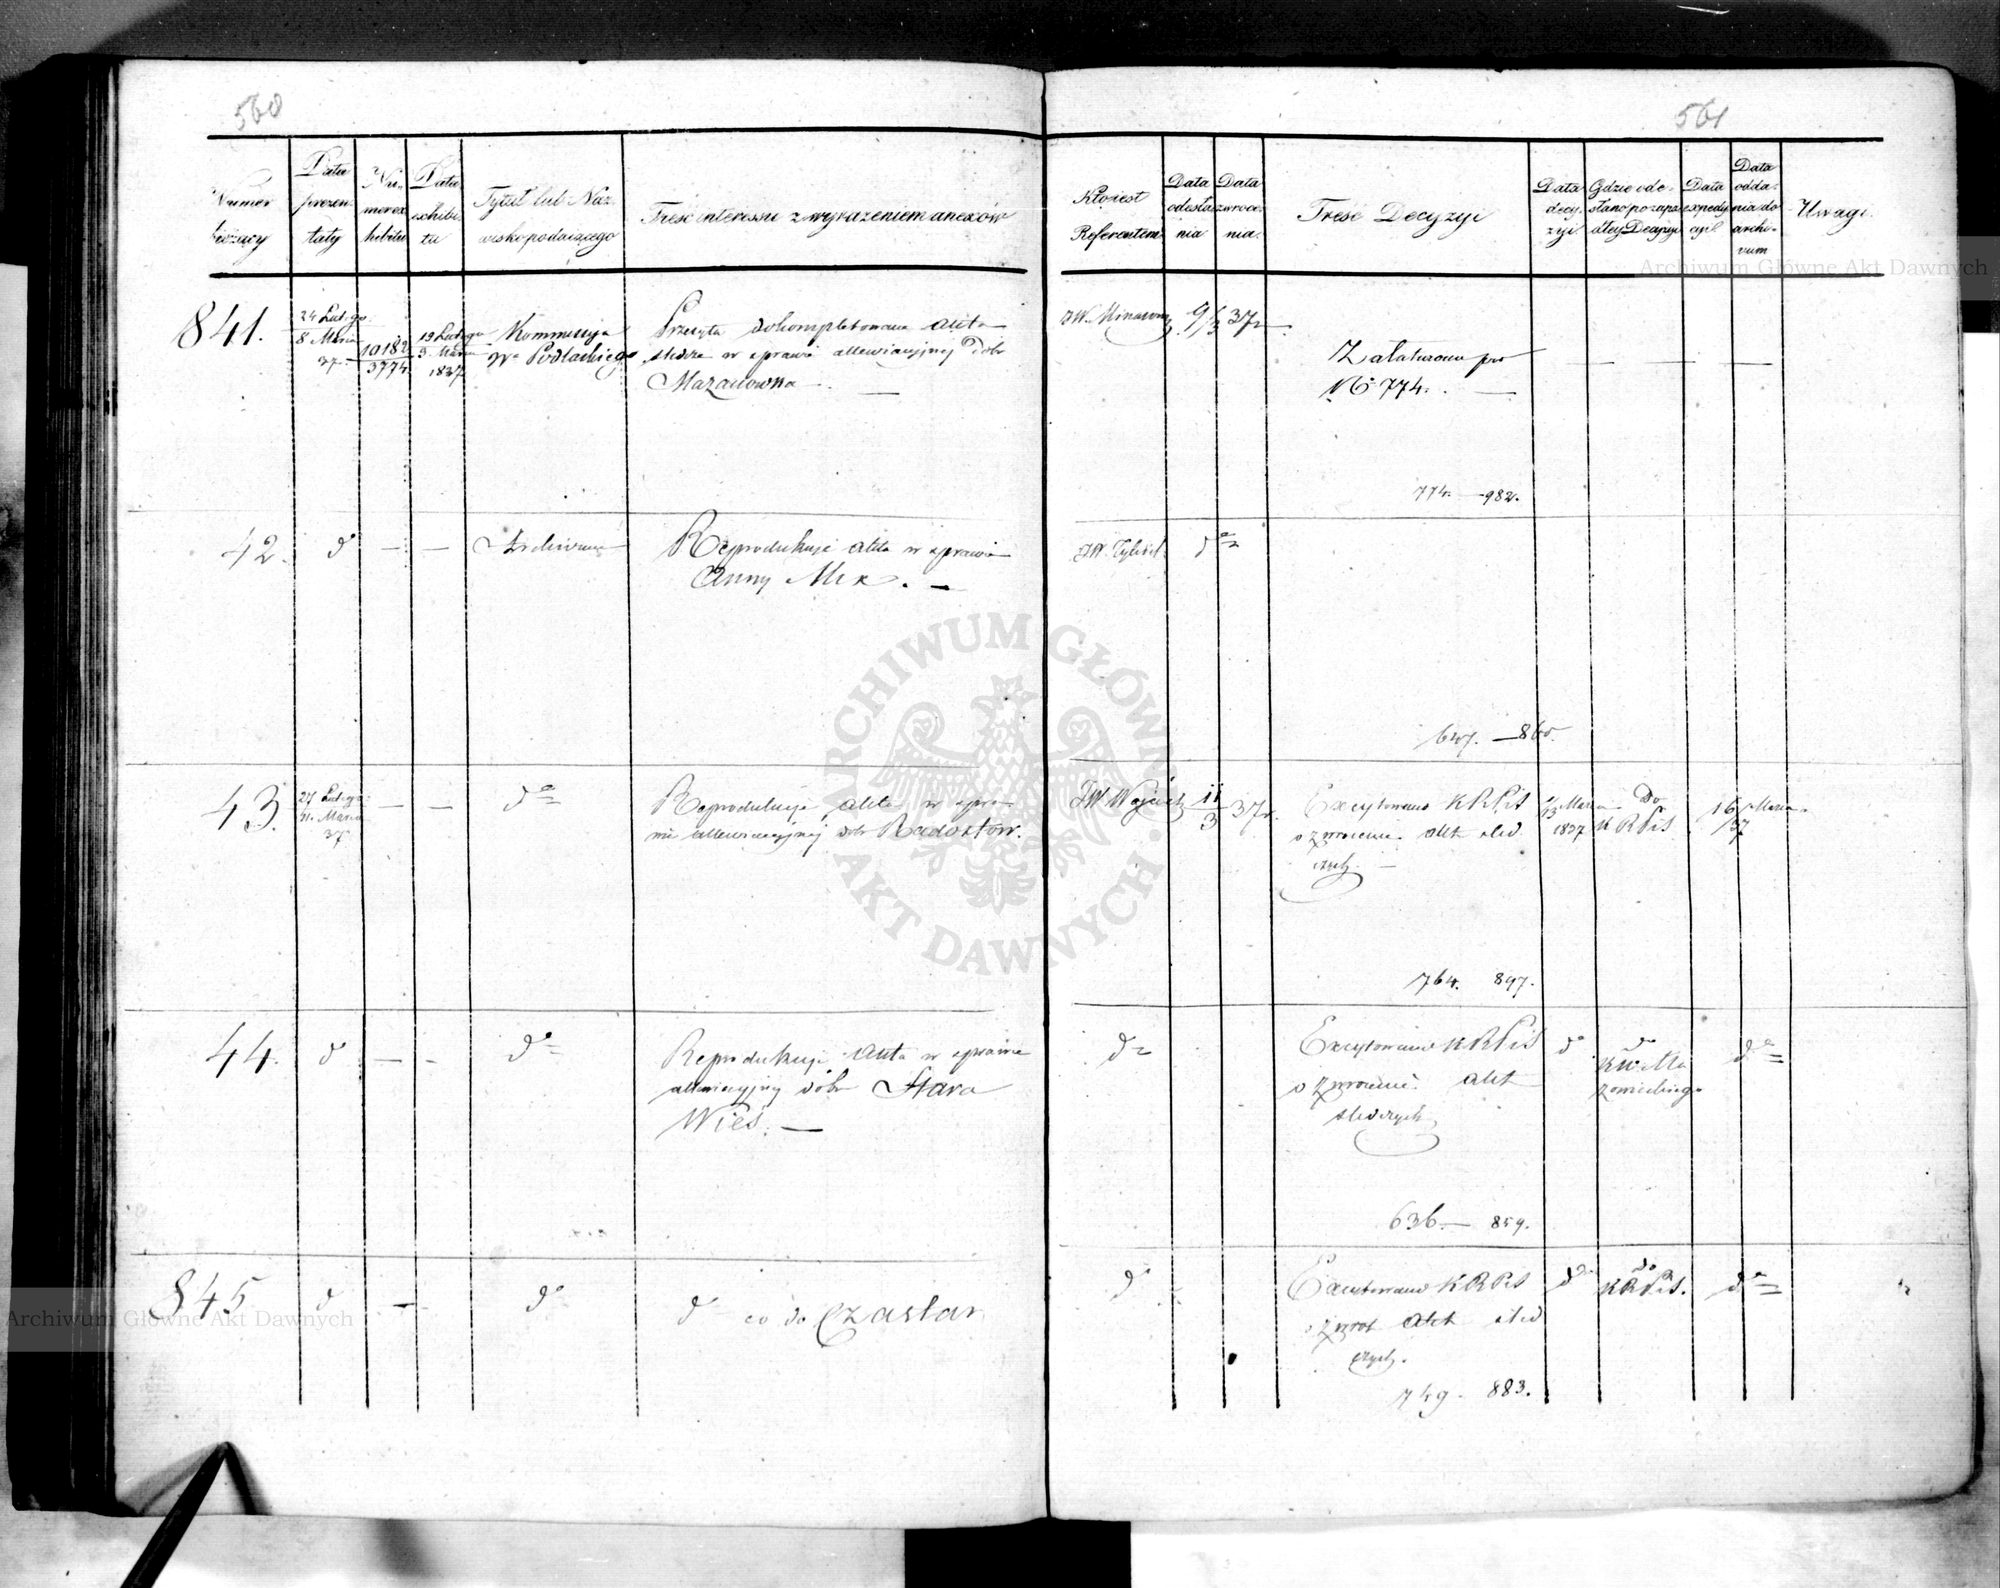 560
Numer
bieżący
Data
prezen-
taty
Nu-
mer ex-
hibitu
Data
exhibi-
tu
Tytuł lub Naz-
wisko podaiącego
Treść interessu z wyrażeniem anexów
841.
24 Lutego
8 Marca
37
10182
3774
19 Lutego
3 Marca
1837
Kommissyja
Wa Podlaskiego
Przesyła skompletowane akta
śledcze w sprawie allewiacyjnej dobr
Mazanówka
42.
d
—
—
Archiwum
Reprodukuje akta w sprawie
Anny Mex. —
43.
27 Lutego
11. Marca
37
—
—
do
Reprodukuje akta w spra-
wie allewiacyjnej dobr Radostów.
44.
d
—
-
do
Reprodukuje akta w sprawie
allewiacyjnej dóbr Stara
Wieś. —
845
d
—
do
do co do Czastar
561
Kto jest
Referentem
Data
odesła
nia
Data
zwróce-
nia.
Treść Decyzyi
Data
decy-
zyi
Gdzie ode-
słano po zapa-
dłey Decyzyi
Data
expedy
cyi
Data
odda-
nia do
archi-
vum
Uwagi.
JW. Minasow
9/3 37
Załatwiono pro
No 774. —
—
—
—
774. — 982.
JW.
do
647. — 860.
JW Wojciech
11/3 37r.
Excytowano KRPiS
o zwrócenie akt śled
czych. —
1/13 Marca
1837
Do
KRPiS
16 Marca
/37
764. 897.
do
Excytowano KRPiS
o zwrócenie akt
śledczych
do
do
KW Ma
zowieckiego
do
636. — 859.
do
Excytowano KRPiS
o zwrot akt śled
czych.
do
do
KRPiS.
do
749. 883.
ARCHIWUM GŁÓWNE
AKT DAWNYCH
Archiwum Główne Akt Dawnych
Archiwum Główne Akt Dawnych